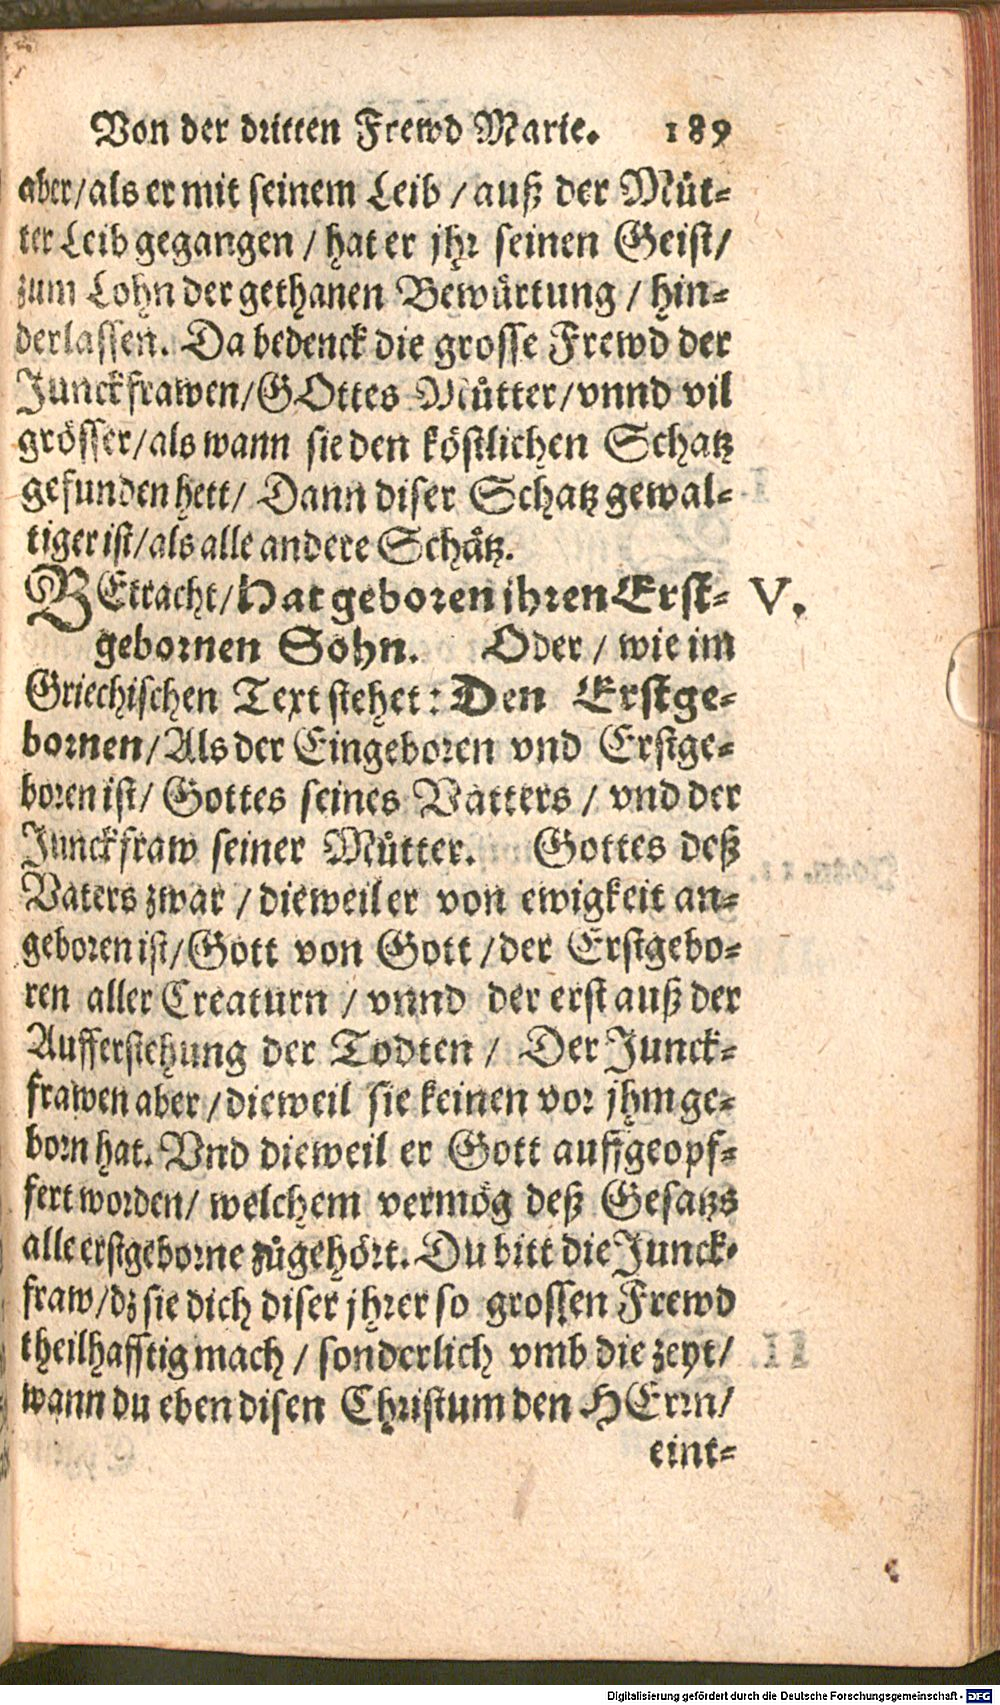 Von der dritten Frewd Marie. 189
aber/als er mit seinem Leib / auß der Můt-
ter Leib gegangen / hat er jhr seinen Geist/
zum Lohn der gethanen Bewürtung / hin-
derlassen. Da bedenck die grosse Frewd der
Junckfrawen/GOttes Můtter/vnnd vil
grösser/als wann sie den köstlichen Schatz
gefunden hett/ Dann diser Schatz gewal-
tiger ist/als alle andere Schätz.
BEtracht/Hat geboren ihren Erst- V.
gebornen Sohn. Oder / wie im
Griechischen Text stehet: Den Erstge-
bornen/Als der Eingeboren vnd Erstge-
boren ist/ Gottes seines Vatters / vnd der
Junckfraw seiner Můtter. Gottes deß
Vaters zwar / dieweil er von ewigkeit an-
geboren ist/Gott von Gott /der Erstgebo-
ren aller Creaturn / vnnd der erst auß der
Aufferstehung der Todten / Der Junck-
frawen aber /dieweil sie keinen vor jhm ge-
born hat. Vnd dieweil er Gott auffgeopf-
fert worden/ welchem vermög deß Gesatzs
alle erstgeborne zůgehört. Du bitt die Junck-
fraw/dz sie dich diser jhrer so grossen Frewd
theilhafftig mach / sonderlich vmb die zeyt/
wann du eben disen Christum den HErrn/
eint-
Digitalisierung gefördert durch die Deutsche Forschungsgemeinschaft - DFG